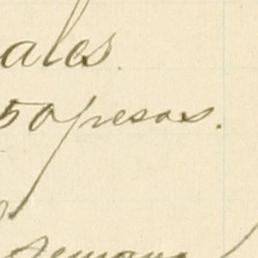 ales.
50 pesos.
semana